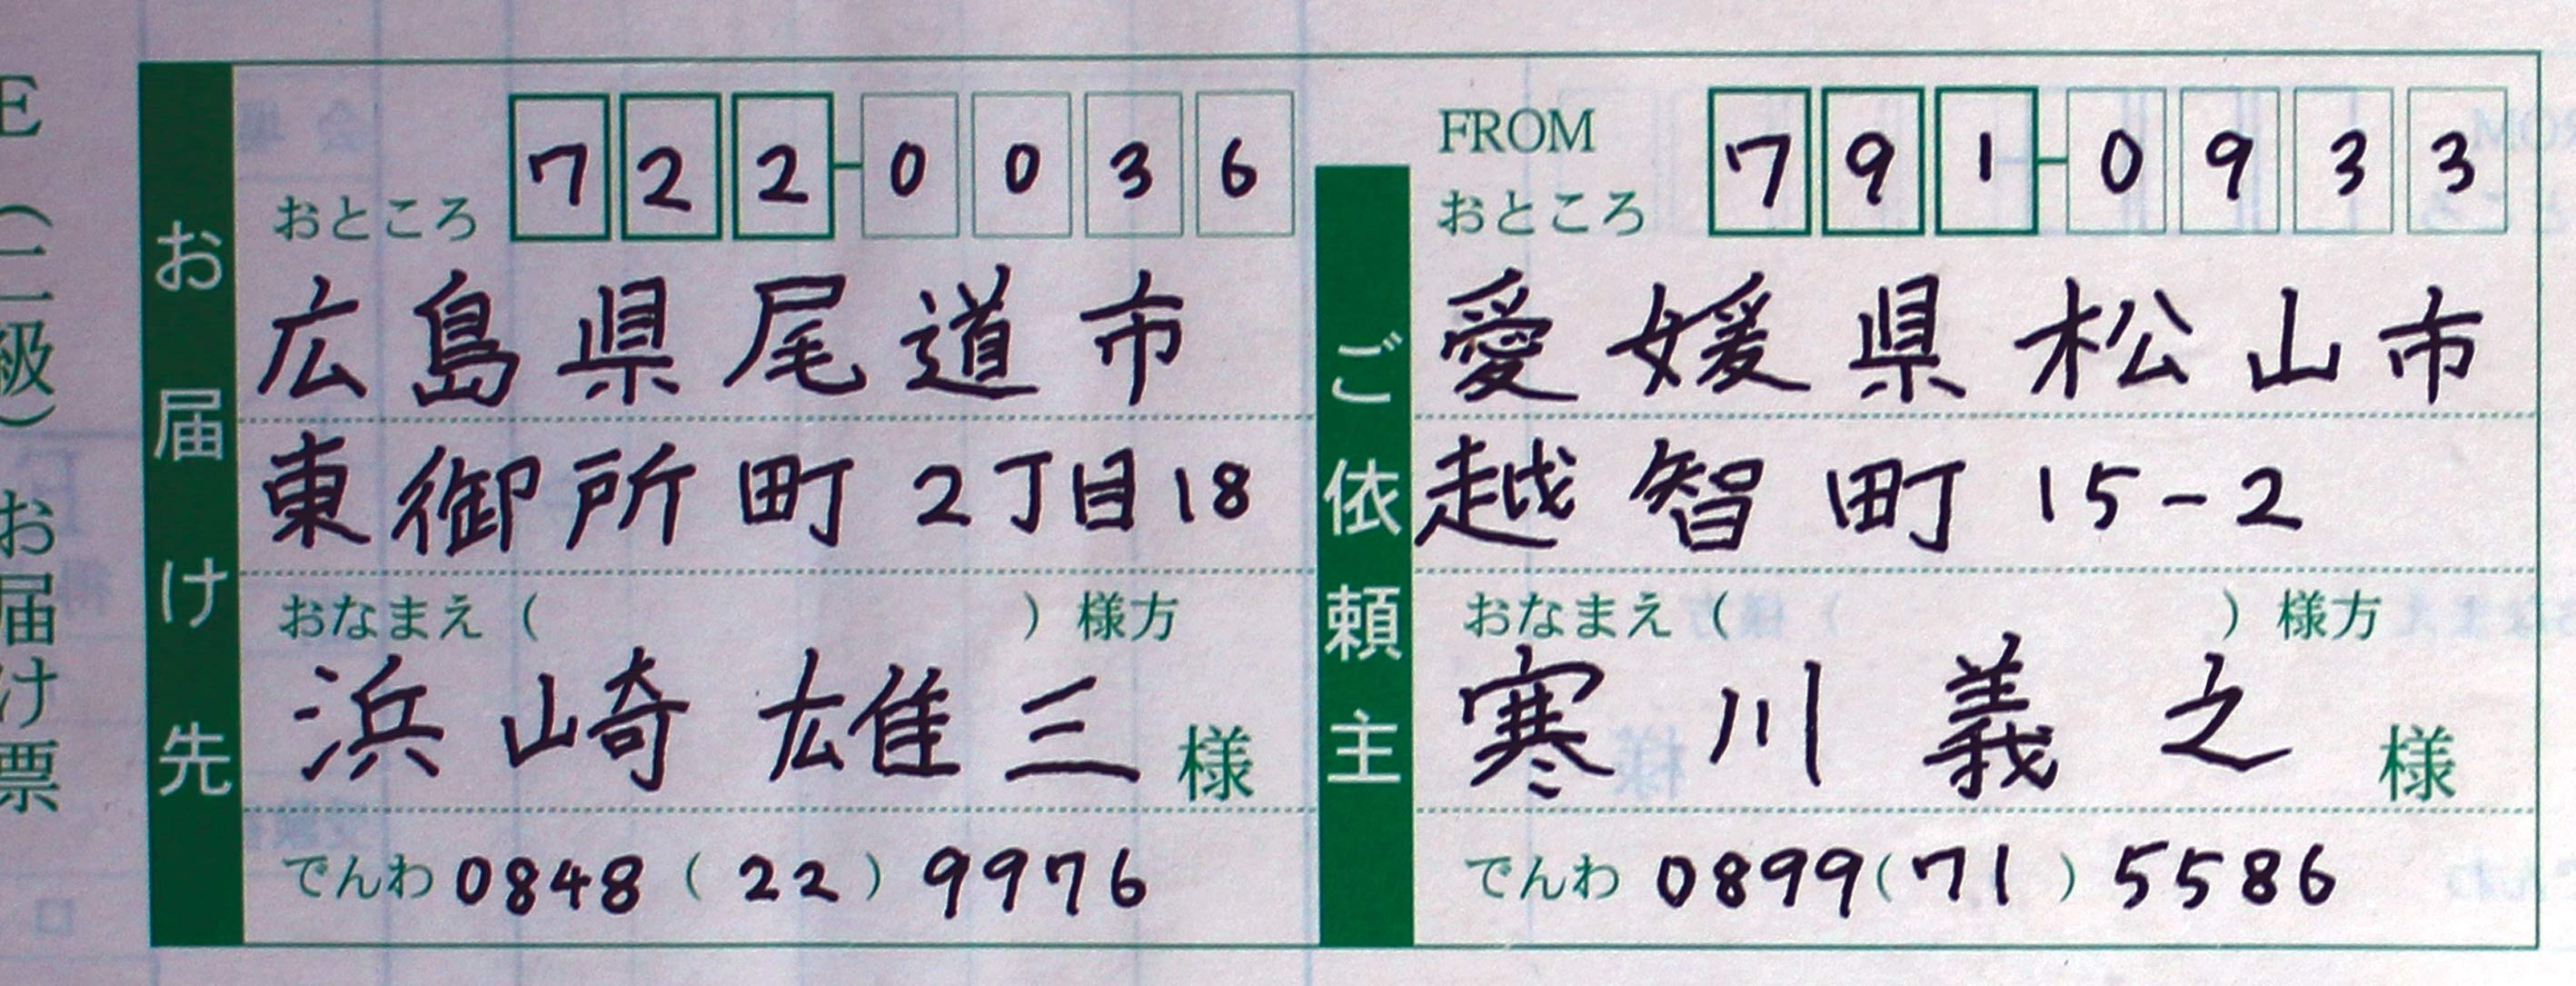 E（二級）お届け票
お届け先
おところ 722-0036
広島県尾道市
東御所町2丁目18
おなまえ（ ）様方
浜崎雄三 様
でんわ 0848（22）9976
ご依頼主
FROM
おところ 791-0933
愛媛県松山市
越智町15-2
おなまえ（ ）様方
寒川義之 様
でんわ 0899（71）5586